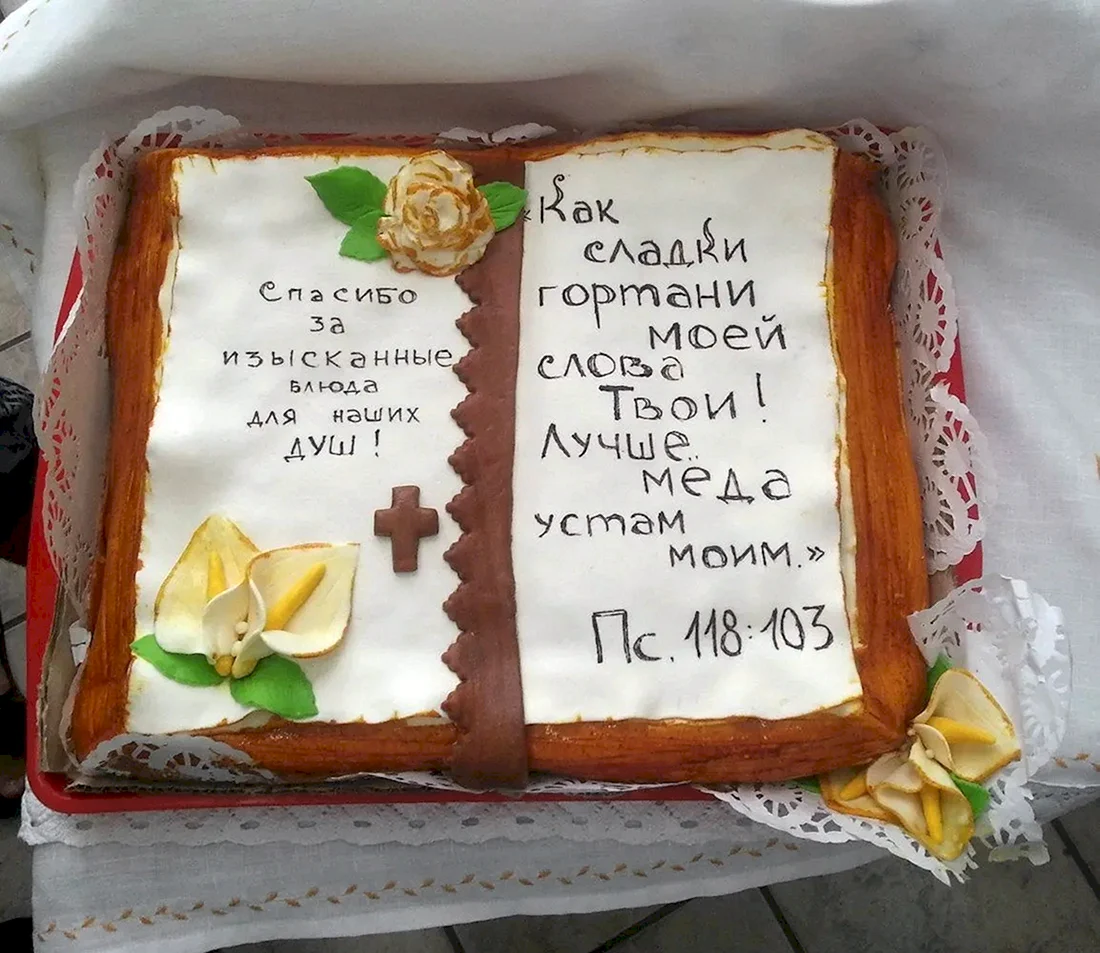 Спасибо
за
изысканные
блюда
для наших
душ!
«Как
сладки
гортани
моей
слова
Твои!
Лучше
мёда
устам
моим.»
Пс. 118:103